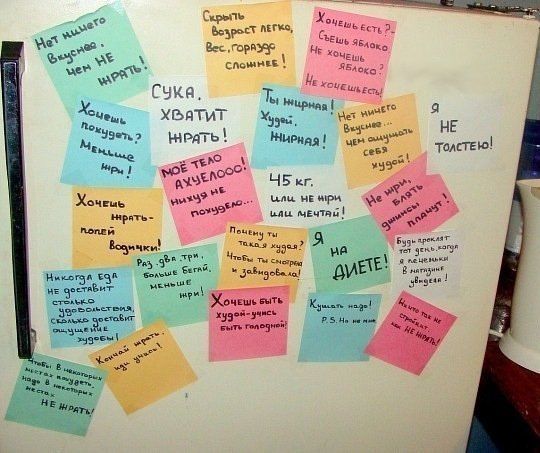 Нет ничего
вкуснее,
чем НЕ
ЖРАТЬ!
Скрыть
возраст легко,
Вес, гораздо
сложнее!
Хочешь есть?-
Съешь яблоко
Не хочешь
яблоко?
Не хочешь есть!
Хочешь
похудеть?
Меньше
жри!
СУКА,
ХВАТИТ
ЖРАТЬ!
Ты жирная!
Худей,
ЖИРНАЯ!
Нет ничего
Вкуснее...
чем ощущать
себя
худой!
Я
НЕ
ТОЛСТЕЮ!
Хочешь
жрать-
попей
водички!
МОЁ ТЕЛО
АХУЕЛООО!
нихуя не
похудело...
45 кг.
или не жри
или мечтай!
Не жри,
блять
джинсы
плачут!
Никогда еда
не доставит
столько
удовольствия,
сколько доставит
ощущение
худобы!
Раз, два, три,
больше бегай,
меньше
жри!
Почему ты
такая худая?
Чтобы ты смотрела
и завидовала!
Я
НА
ДИЕТЕ!
Будь проклят
тот день, когда
я печеньки
в магазине
увидела!
Чтобы в некоторых
местах похудеть,
надо в некоторых
местах
НЕ ЖРАТЬ!
Кончай жрать,
иди учись!
Хочешь быть
худой-учись
быть голодной!
Кушать надо!
P.S. Но не мне
Ничто так не
стройнит,
как НЕ ЖРАТЬ!